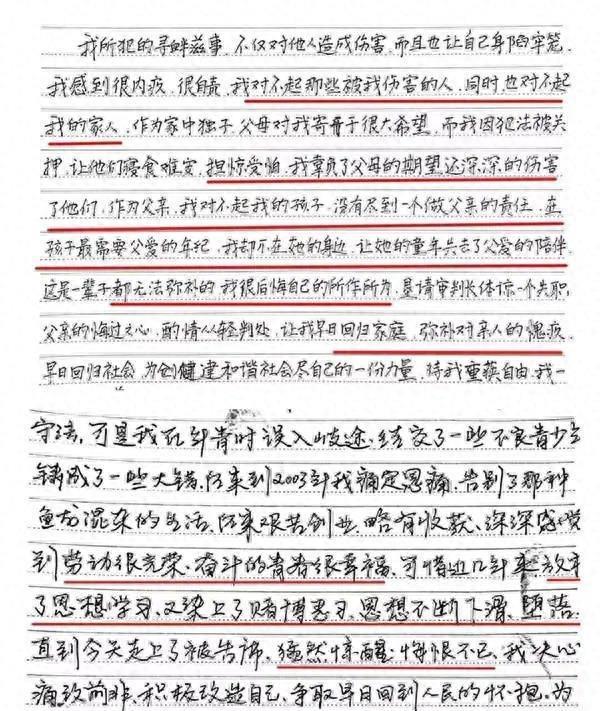 我所犯的寻衅滋事、不仅对他人造成伤害、而且也让自己身陷牢笼、
我感到很内疚、很自责、我对不起那些被我伤害的人、同时也对不起
我的家人、作为家中独子、父母对我寄予了很大希望、而我因犯法被关
押、让他们寝食难安、担惊受怕、我辜负了父母的期望还深深的伤害
了他们、作为父亲、我对不起我的孩子、没有尽到一个做父亲的责任、在
孩子最需要父爱的年纪、我却不在她的身边、让她的童年失去了父爱的陪伴
这是一辈子都无法弥补的、我很后悔自己的所作所为、恳请审判长体谅一个失职
父亲的悔过之心、酌情从轻判处、让我早日回归家庭、弥补对亲人的愧疚、
早日回归社会、为创建和谐社会尽自己的一份力量、待我重获自由、我一
守法、可是我在年青时误入歧途、结交了一些不良青少年
铸成了一些大错、后来到2003年我痛定思痛、告别了那种
鱼龙混杂的生活、后来艰苦创业、略有收获、深深感觉
到劳动很光荣、奋斗的青春很幸福、可惜近几年来放弃
了思想学习、又染上了赌博恶习、思想不断下滑、堕落、
直到今天走上了被告席、猛然惊醒、悔恨不已、我决心
痛改前非、积极改造自己、争取早日回到人民的怀抱、为